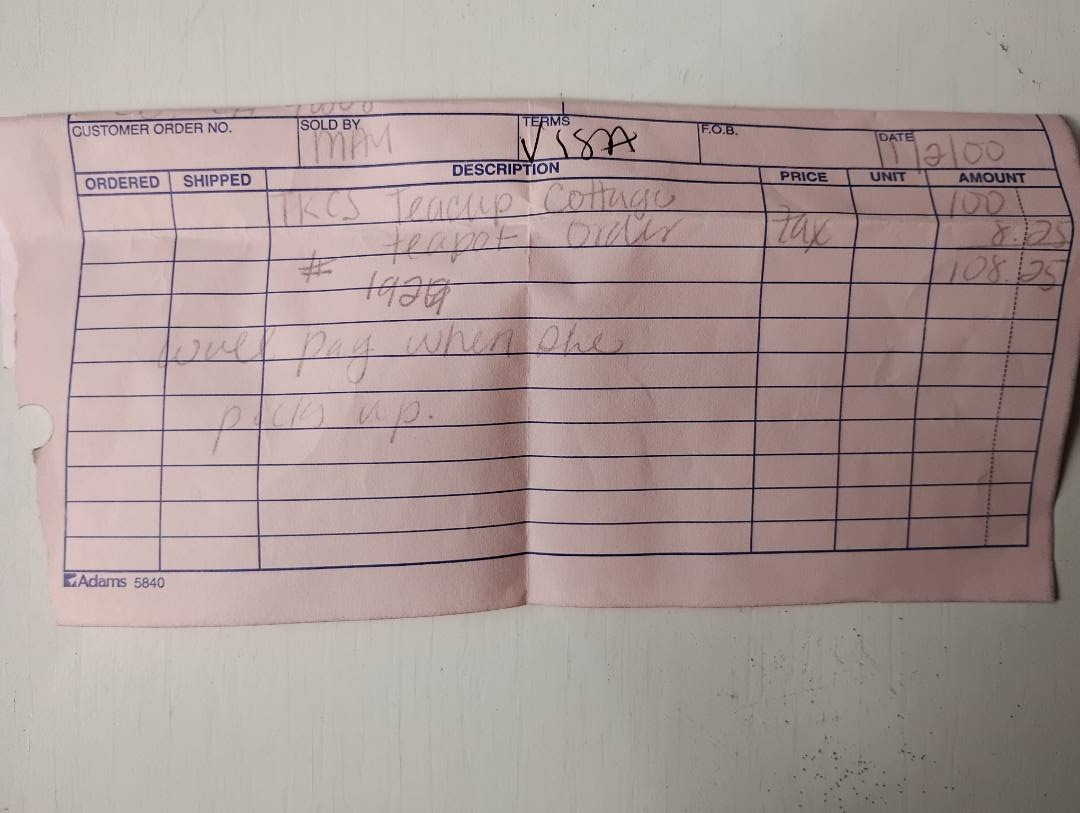 CUSTOMER ORDER NO. SOLD BY TERMS F.O.B. DATE
MAM VISA 1/2/00
ORDERED SHIPPED DESCRIPTION PRICE UNIT AMOUNT
TKCS Teacup Cottage 100
teapot order tax 8.25
# 108.25
1929
will pay when she
picks up.
Adams 5840